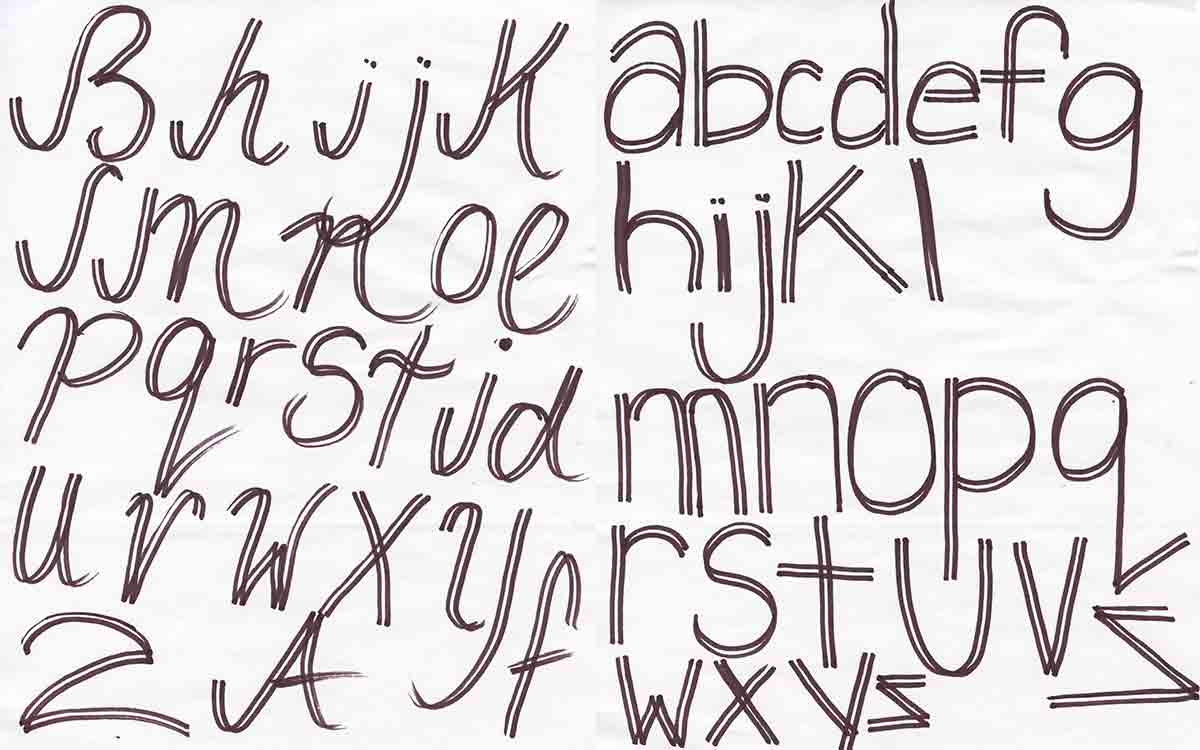 B h i j K
m n o e
p q r s t i d
u v w x y f
z A
a b c d e f g
h i j K l
m n o p q
r s t u v z
w x y z